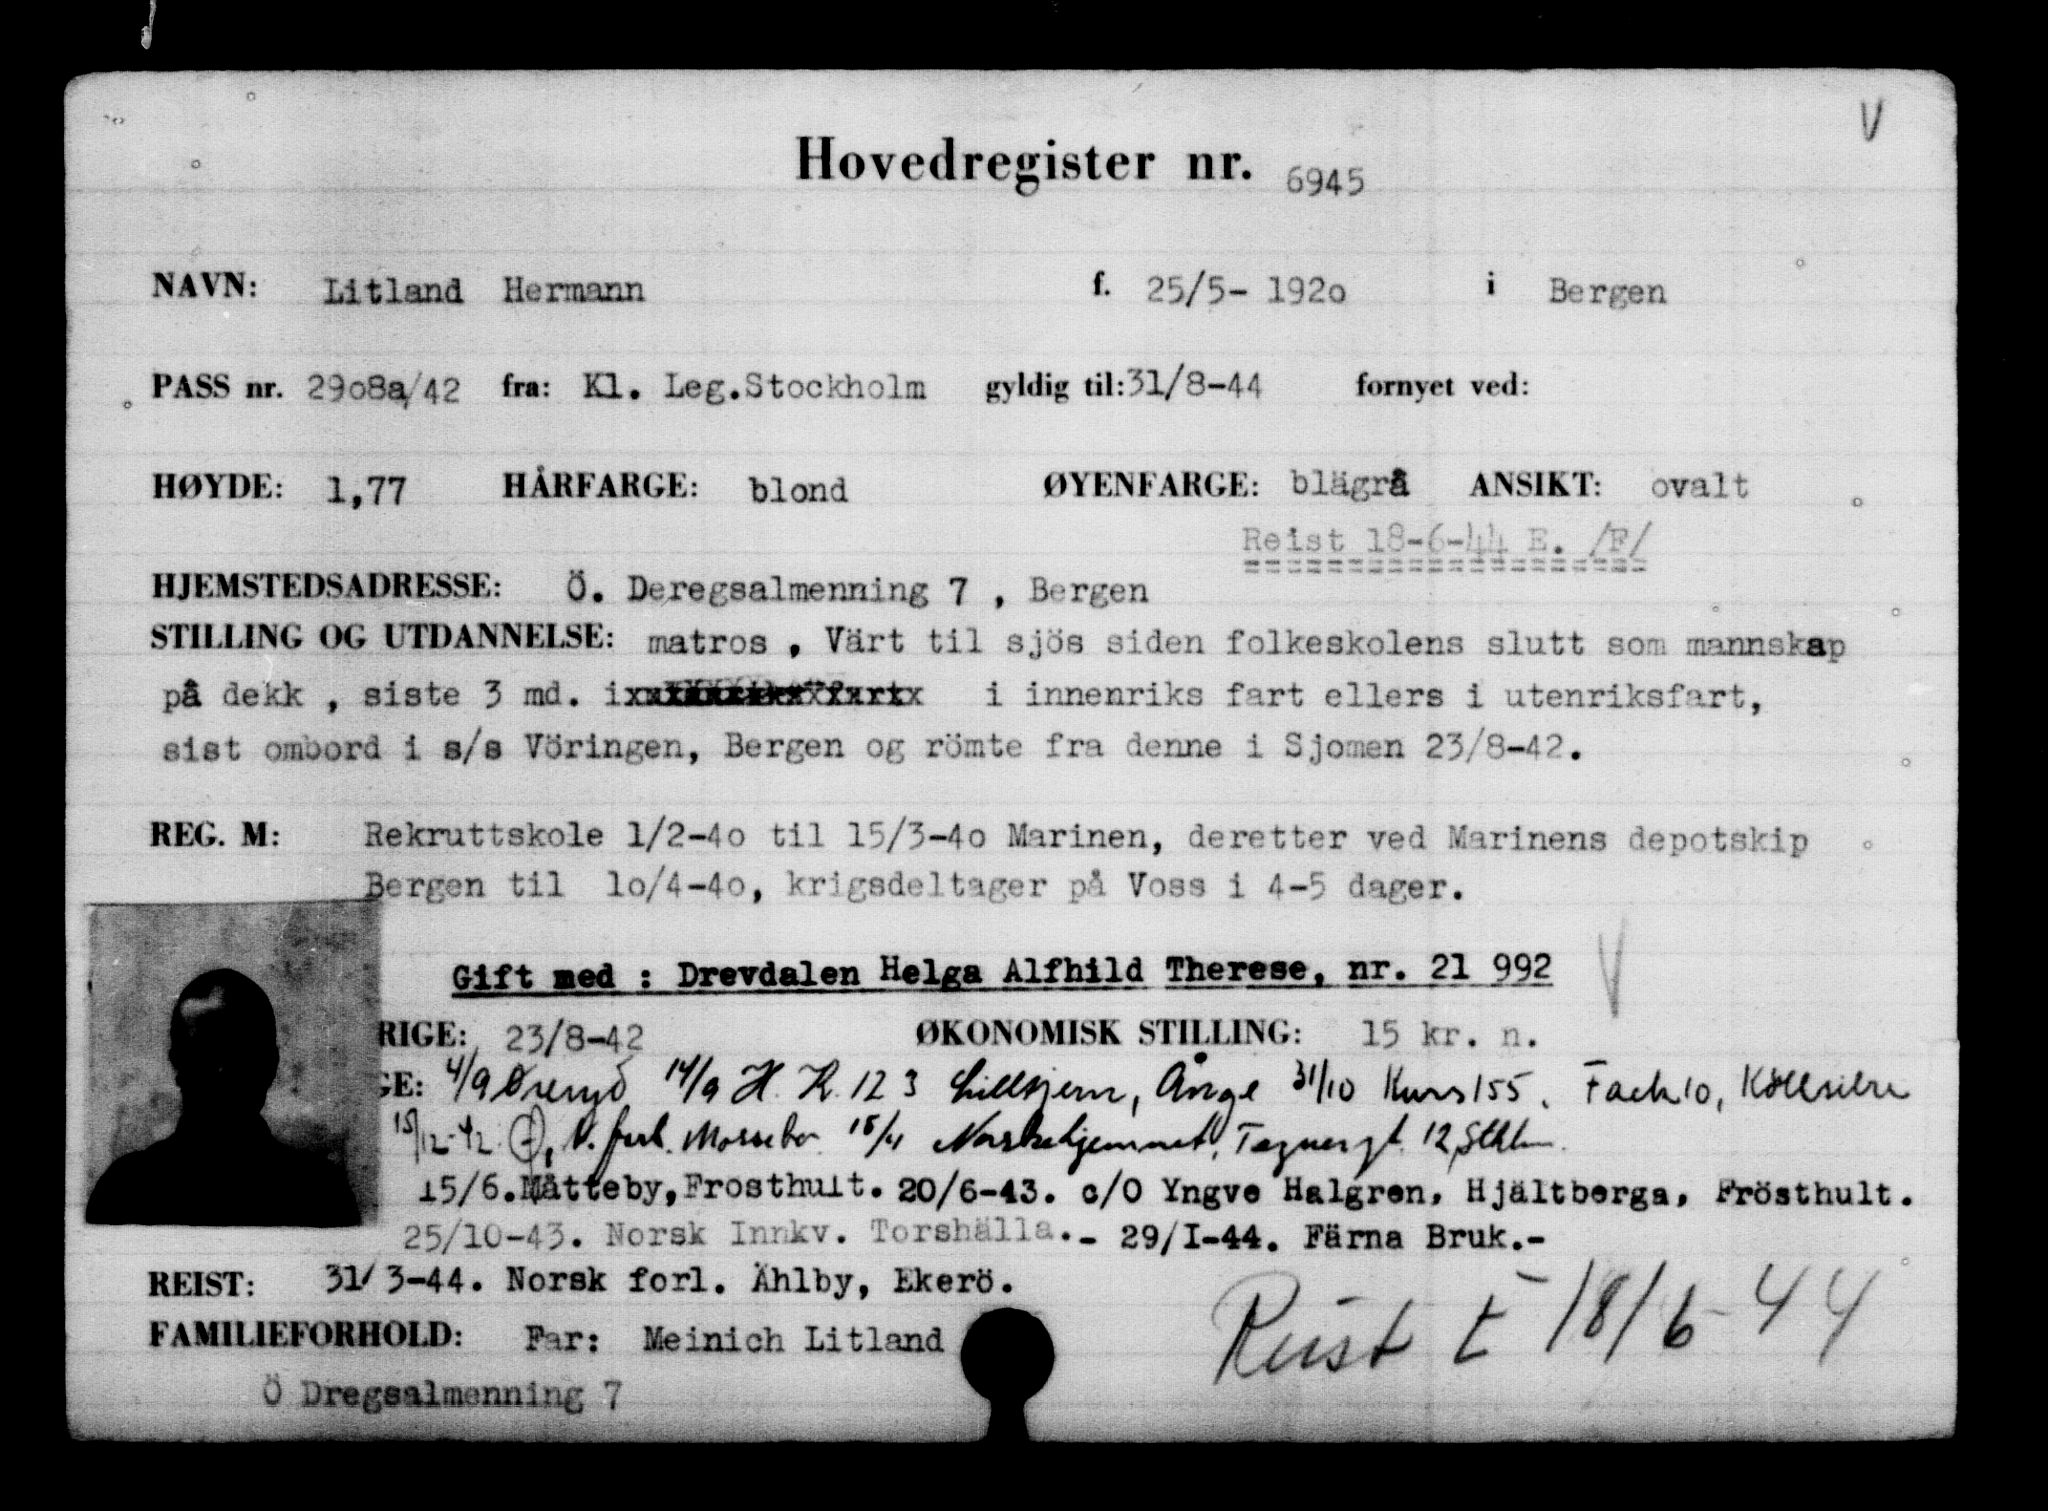 V
Hovedregister nr. 6945
NAVN: Litland Hermann f. 25/5- 192o i Bergen
PASS nr. 29o8a/42 fra: Kl. Leg.Stockholm gyldig til:31/8-44 fornyet ved:
HØYDE: 1,77 HÅRFARGE: blond ØYENFARGE: blägrå ANSIKT: ovalt
Reist 18-6-44 E. /F/
HJEMSTEDSADRESSE: Ö. Deregsalmenning 7 , Bergen
STILLING OG UTDANNELSE: matros , Värt til sjös siden folkeskolens slutt som mannskap
på dekk , siste 3 md. i innenriks fart ellers i utenriksfart,
sist ombord i s/s Vöringen, Bergen og römte fra denne i Sjomen 23/8-42.
REG. M: Rekruttskole 1/2-4o til 15/3-4o Marinen, deretter ved Marinens depotskip
Bergen til 1o/4-4o, krigsdeltager på Voss i 4-5 dager.
Gift med : Drevdalen Helga Alfhild Therese, nr. 21 992
RIGE: 23/8-42 ØKONOMISK STILLING: 15 kr. n.
GE: 4/9 Öreryd 14/9 H. K. 123 Lillsjern, Ånge 31/10 Kurs 155, Fack 10,
15/12-42 N. forl. Mossebo 15/4 Norskehjemmet, Tegnergt. 12, Sthlm.
15/6.Mätteby,Frosthult. 20/6-43. c/O Yngve Halgren, Hjältberga, Frösthult.
25/10-43. Norsk Innkv. Torshälla.- 29/I-44. Färna Bruk.-
REIST: 31/3-44. Norsk forl. Ählby, Ekerö.
Reist E 18/6-44
FAMILIEFORHOLD: Far: Meinich Litland
Ö Dregsalmenning 7